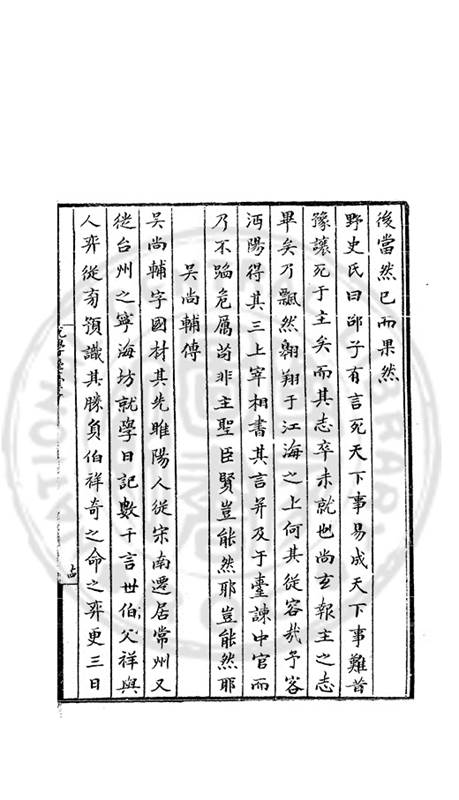 後當然已而果然
野史氏曰邵子有言死天下事易成天下事難昔
豫讓死于主矣而其志卒未就也尚玄報主之志
畢矣乃飄然翺翔于江海之上何其從容哉予客
沔陽得其三上宰相書其言并及于臺諫中官而
乃不蹈危厲茍非主聖臣賢豈能然耶豈能然耶
吳尚輔傳
吳尚輔字國材其先睢陽人從宋南遷居常州又
徙台州之寧海坊就學日記數千言世伯父祥與
人弈從旁預識其勝負伯祥奇之命之弈更三日